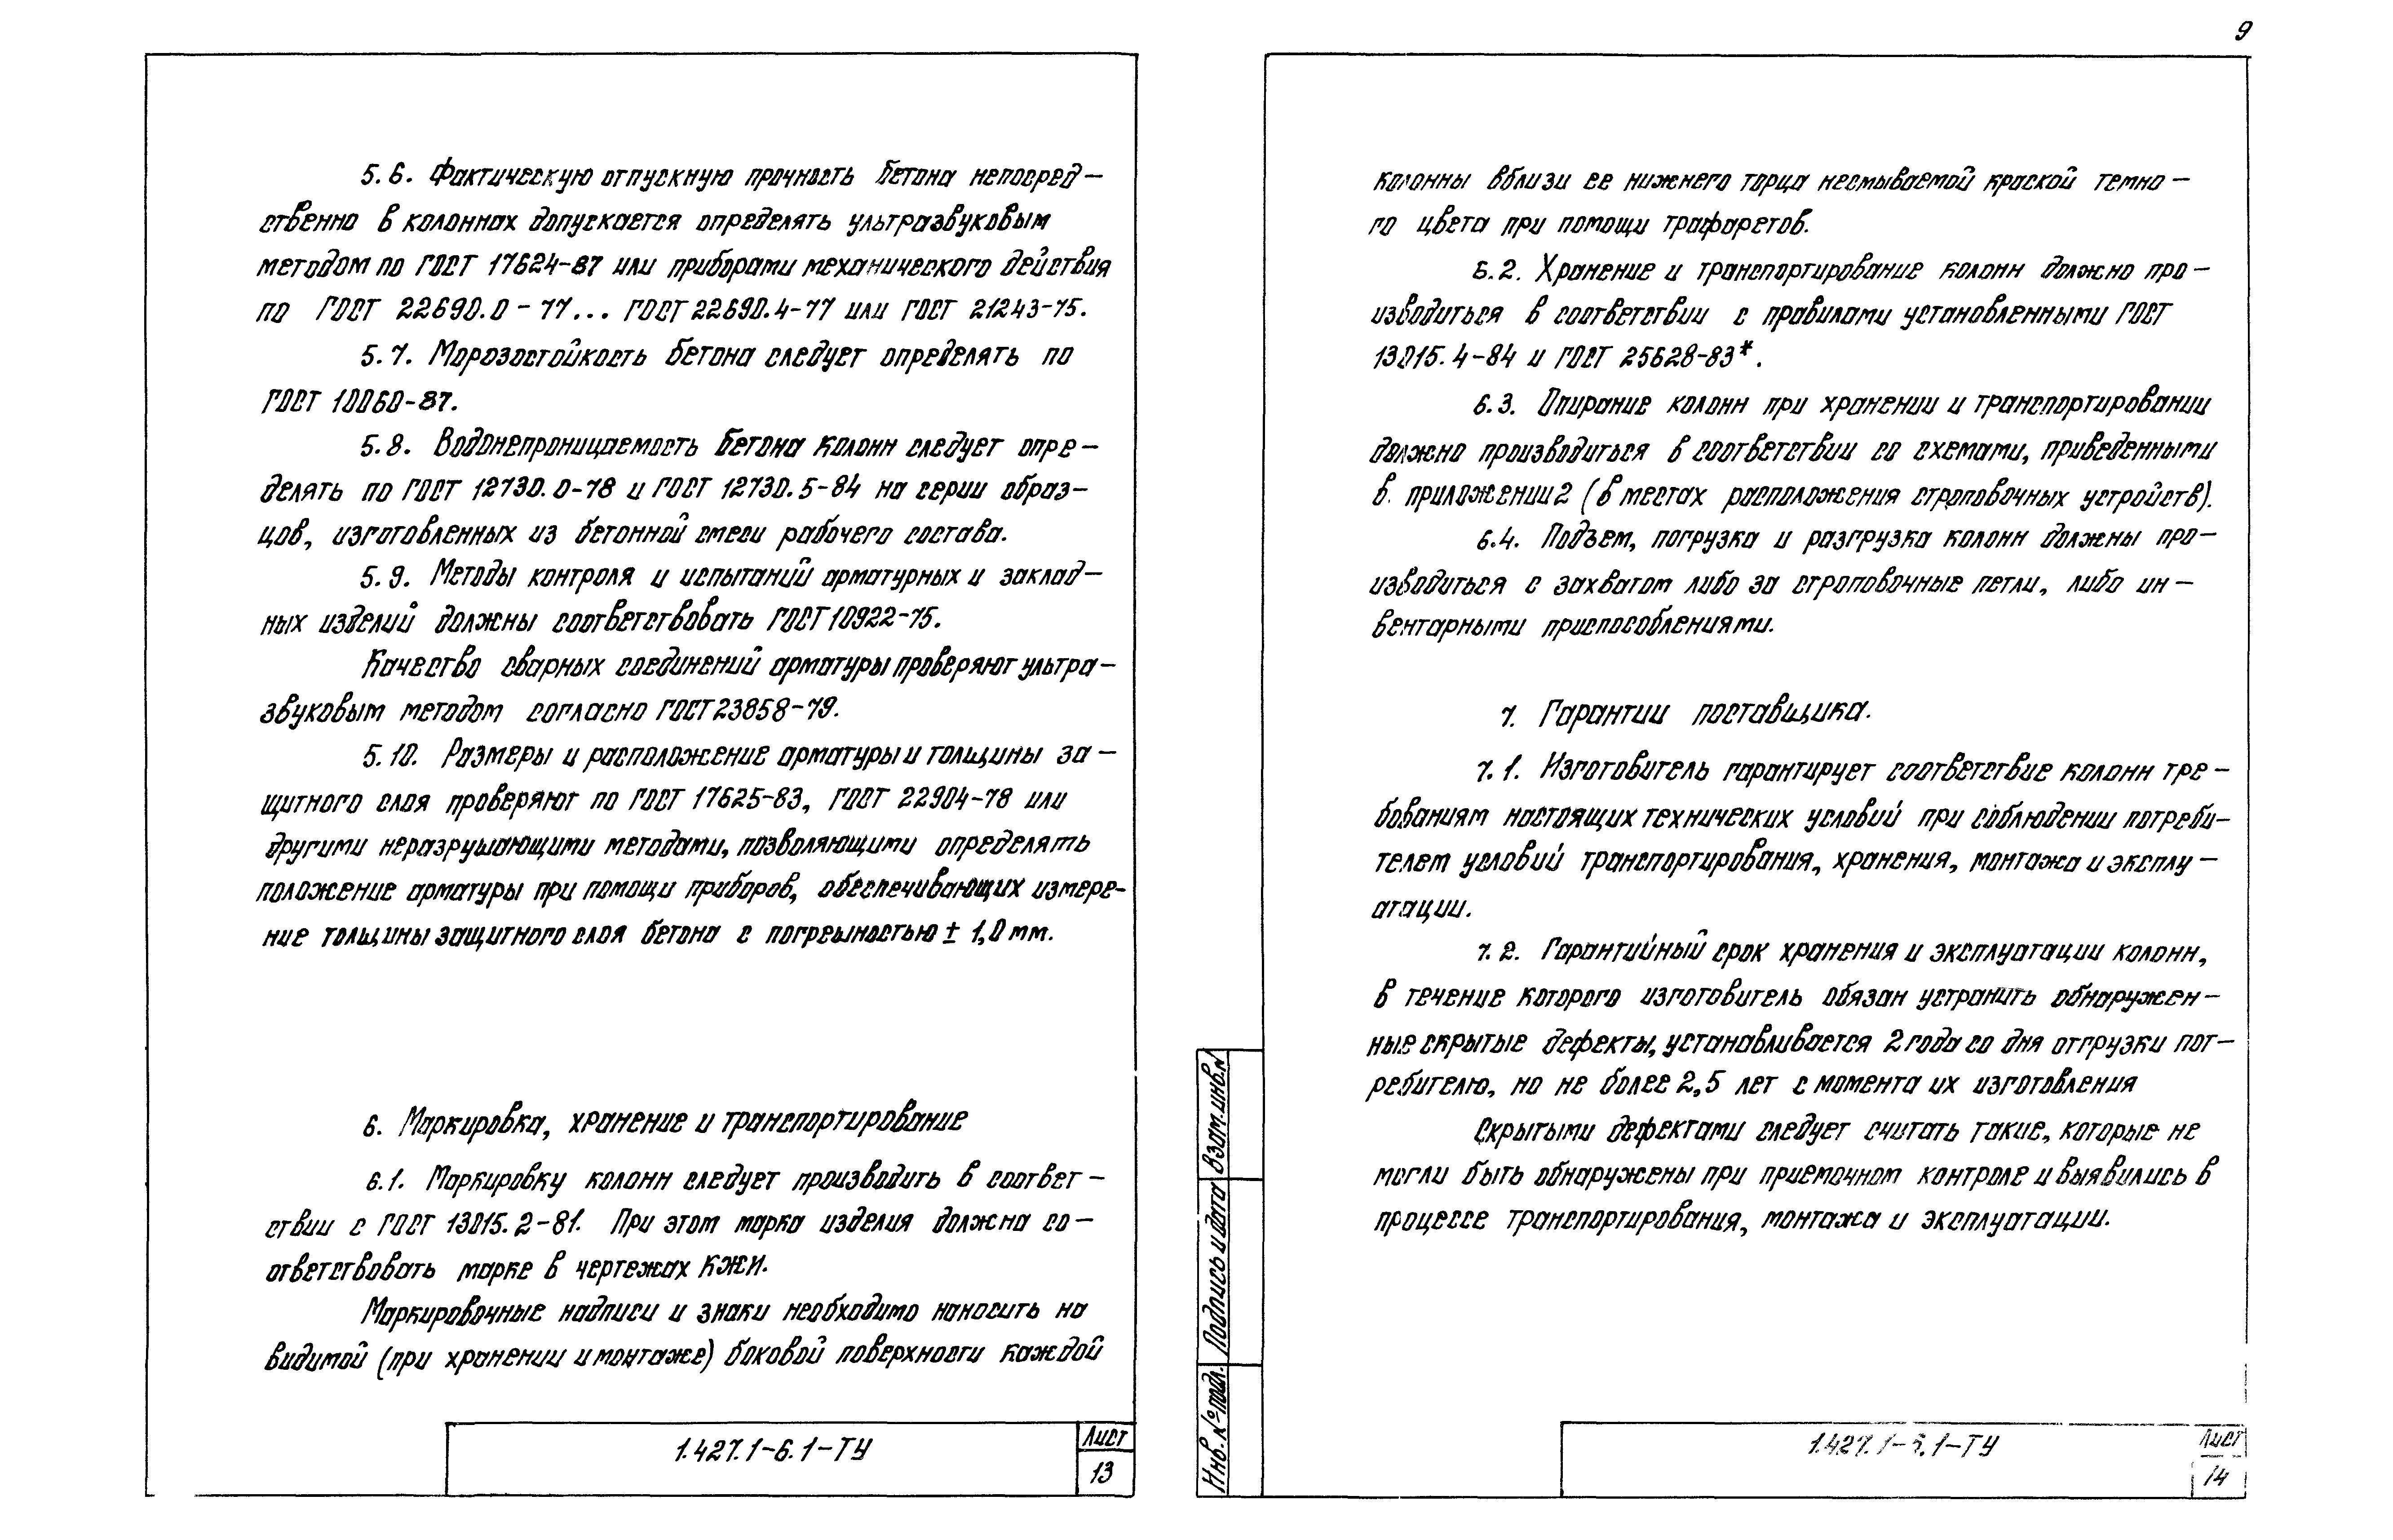 9
5.6. Фактическую отпускную прочность бетона непосред-
ственно в колоннах допускается определять ультразвуковым
методом по ГОСТ 17624-87 или приборами механического действия
по ГОСТ 22690.0-77... ГОСТ 22690.4-77 или ГОСТ 21243-75.
5.7. Морозостойкость бетона следует определять по
ГОСТ 10060-87.
5.8. Водонепроницаемость бетона колонн следует опре-
делять по ГОСТ 12730.0-78 и ГОСТ 12730.5-84 на серии образ-
цов, изготовленных из бетонной смеси рабочего состава.
5.9. Методы контроля и испытаний арматурных и заклад-
ных изделий должны соответствовать ГОСТ 10922-75.
Качество сварных соединений арматуры проверяют ультра-
звуковым методом согласно ГОСТ 23858-79.
5.10. Размеры и расположение арматуры и толщины за-
щитного слоя проверяют по ГОСТ 17625-83, ГОСТ 22904-78 или
другими неразрушающими методами, позволяющими определять
положение арматуры при помощи приборов, обеспечивающих измере-
ние толщины защитного слоя бетона с погрешностью ± 1,0 мм.
6. Маркировка, хранение и транспортирование
6.1. Маркировку колонн следует производить в соответ-
ствии с ГОСТ 13015.2-81. При этом марка изделия должна со-
ответствовать марке в чертежах КЖИ.
Маркировочные надписи и знаки необходимо наносить на
видимой (при хранении и монтаже) боковой поверхности каждой
1.427.1-6.1-ТУ
Лист
13
колонны вблизи ее нижнего торца несмываемой краской темно-
го цвета при помощи трафаретов.
6.2. Хранение и транспортирование колонн должно про-
изводиться в соответствии с правилами установленными ГОСТ
13015.4-84 и ГОСТ 25628-83*.
6.3. Опирание колонн при хранении и транспортировании
должно производиться в соответствии со схемами, приведенными
в приложении 2 (в местах расположения строповочных устройств).
6.4. Подъем, погрузка и разгрузка колонн должны про-
изводиться с захватом либо за строповочные петли, либо ин-
вентарными приспособлениями.
7. Гарантии поставщика.
7.1. Изготовитель гарантирует соответствие колонн тре-
бованиям настоящих технических условий при соблюдении потреби-
телем условий транспортирования, хранения, монтажа и эксплу-
атации.
7.2. Гарантийный срок хранения и эксплуатации колонн,
в течение которого изготовитель обязан устранить обнаружен-
ные скрытые дефекты, устанавливается 2 года со дня отгрузки пот-
ребителю, но не более 2,5 лет с момента их изготовления
Скрытыми дефектами следует считать такие, которые не
могли быть обнаружены при приемочном контроле и выявились в
процессе транспортирования, монтажа и эксплуатации.
Взам. инв. №
Подпись и дата
Инв. № подл.
1.427.1-6.1-ТУ
Лист
14